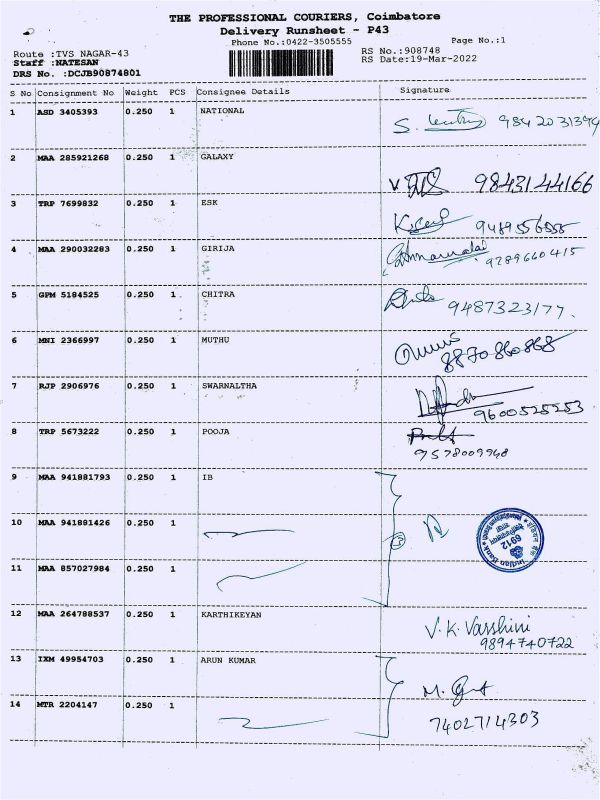 THE PROFESSIONAL COURIERS, Coimbatore
Delivery Runsheet - P43
Phone No.:0422-3505555 Page No.:1
Route :TVS NAGAR-43 RS No.:908748
Staff :NATESAN RS Date:19-Mar-2022
DRS No. :DCJB90874801
S No Consignment No Weight PCS Consignee Details Signature
1 ASD 3405393 0.250 1 NATIONAL
S. 9842031394
2 MAA 285921268 0.250 1 GALAXY
9843144166
3 TRP 7699832 0.250 1 ESK
4 MAA 290032283 0.250 1 GIRIJA
9289660415
5 GPM 5184525 0.250 1 CHITRA
9487323177.
6 MNI 2366997 0.250 1 MUTHU
8870860868
7 RJP 2906976 0.250 1 SWARNALTHA
9600525253
8 TRP 5673222 0.250 1 POOJA
9578009948
9 MAA 941881793 0.250 1 IB
10 MAA 941881426 0.250 1
3
Indian Bank
6912
11 MAA 857027984 0.250 1
12 MAA 264788537 0.250 1 KARTHIKEYAN
V. K. Varshini
9894740722
13 IXM 49954703 0.250 1 ARUN KUMAR
M.
14 MTR 2204147 0.250 1
7402714303